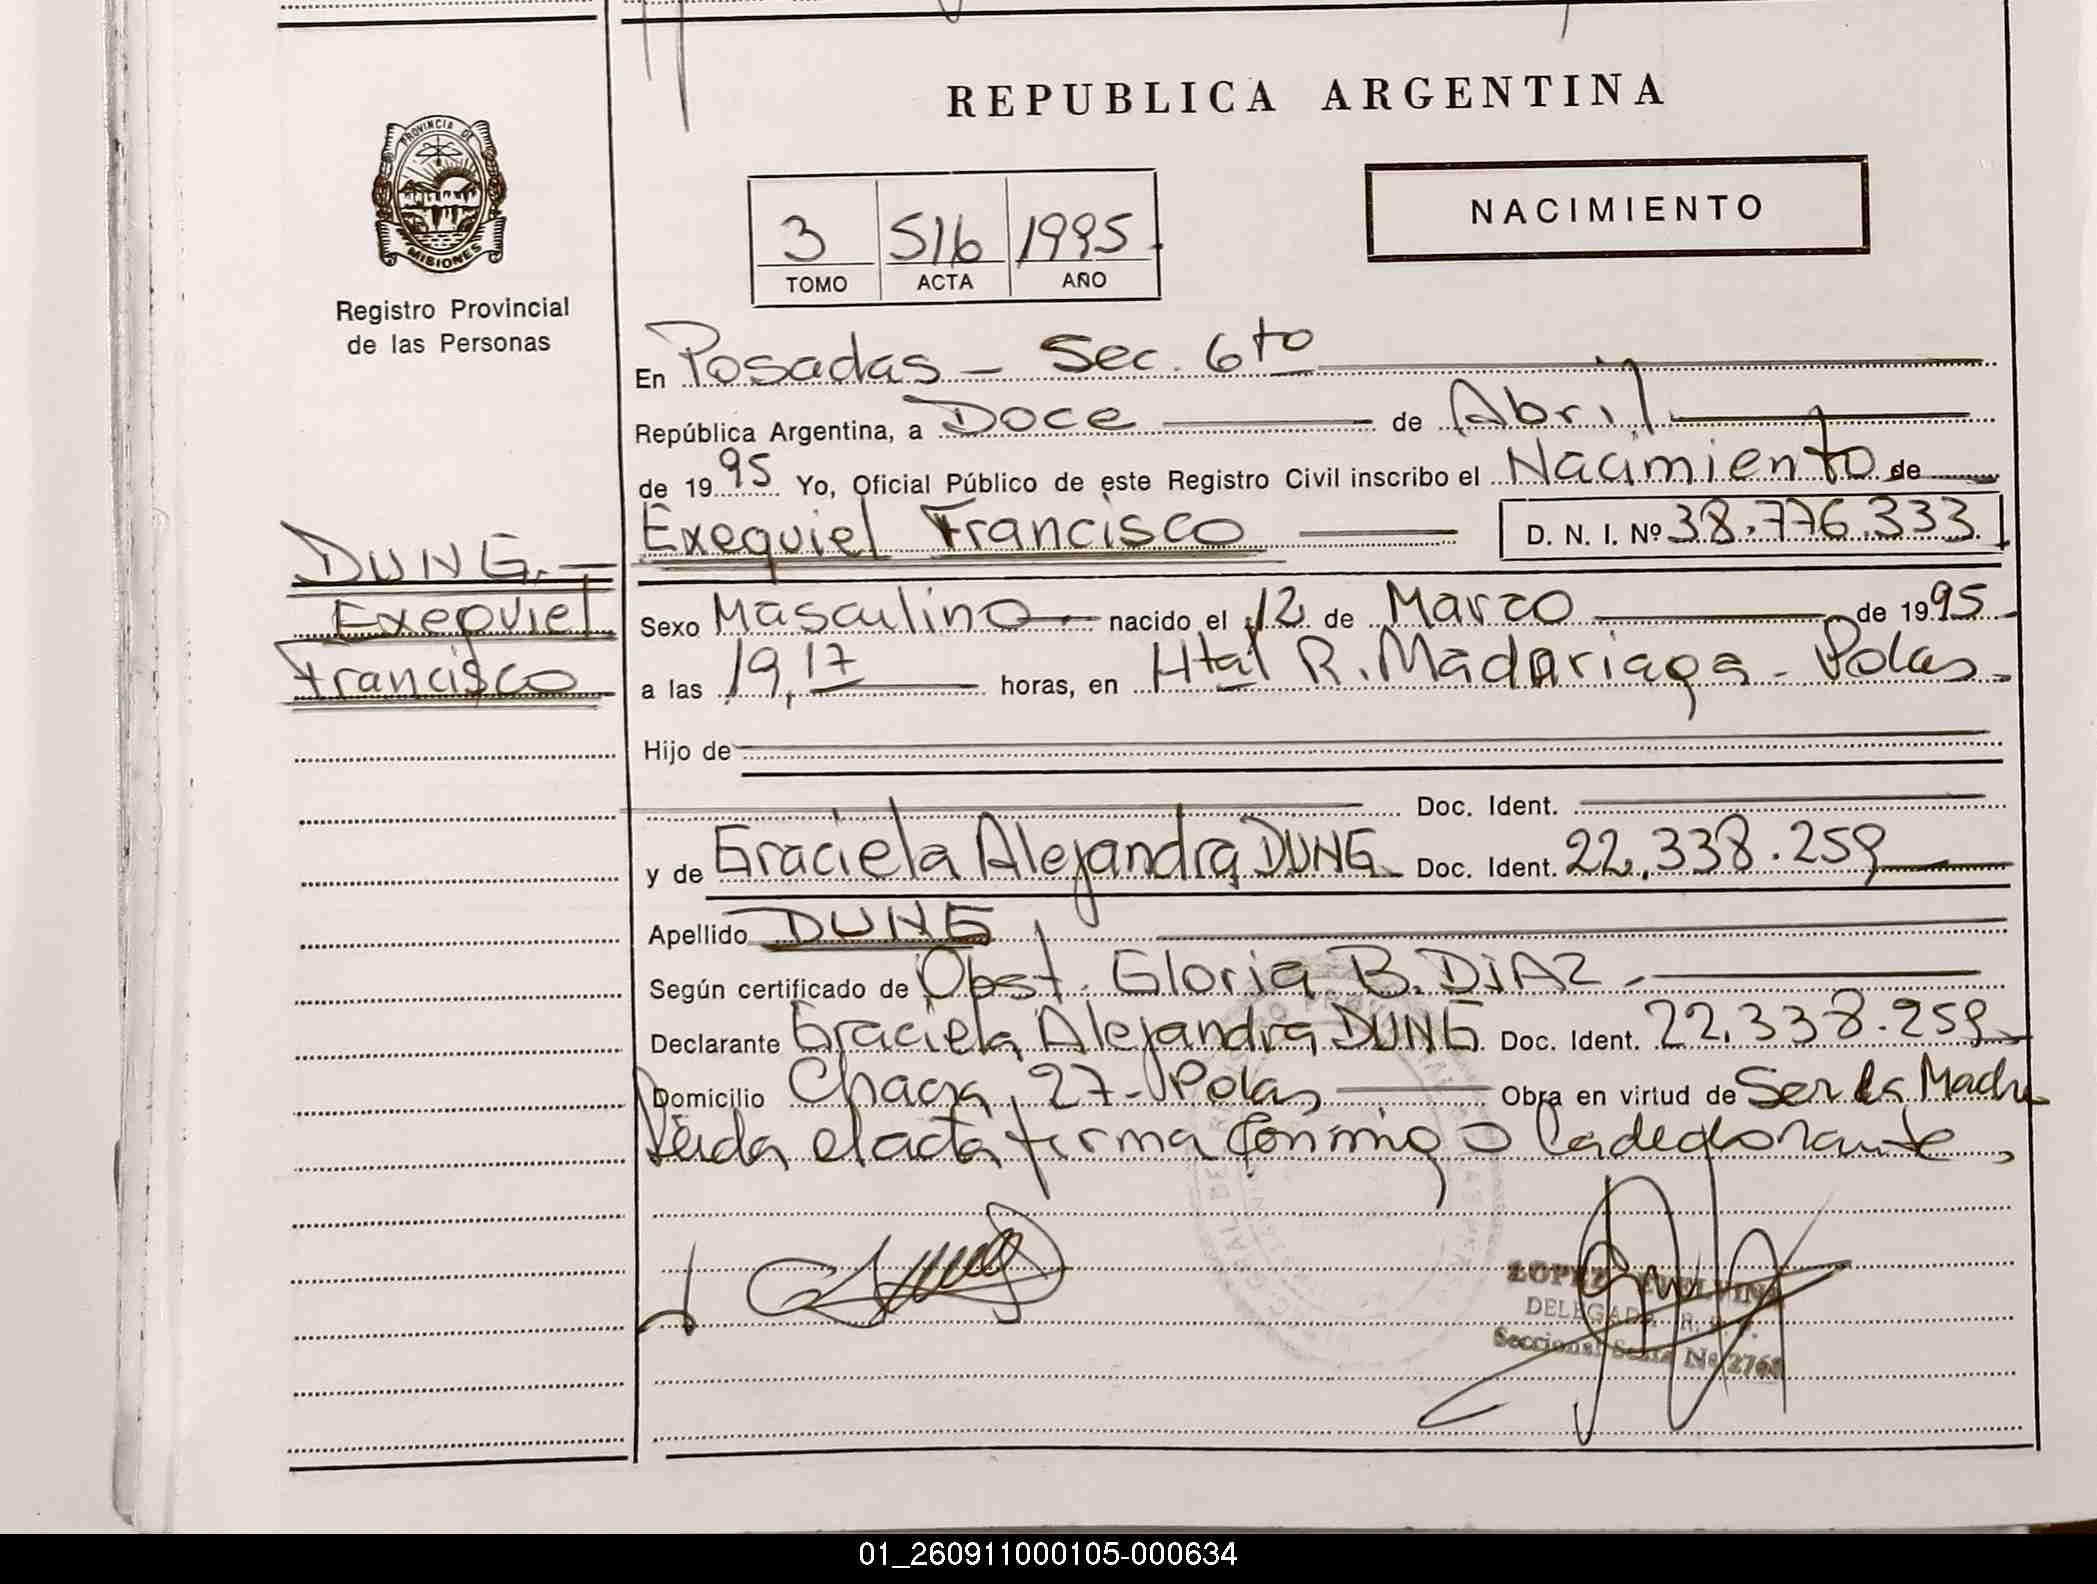 REPUBLICA ARGENTINA
PROVINCIA DE
MISIONES
Registro Provincial
de las Personas
3 516 1995
TOMO ACTA AÑO
NACIMIENTO
En Posadas - Sec. 6to
República Argentina, a Doce de Abril
de 1995 Yo, Oficial Público de este Registro Civil inscribo el Nacimiento de
Exequiel Francisco D. N. I. Nº 38.776.333
DUNG.-
Exequiel
Francisco
Sexo Masculino nacido el 12 de Marzo de 1995
a las 19,17 horas, en Htal R. Madariaga - Pdas.
Hijo de
Doc. Ident.
y de Graciela Alejandra DUNG Doc. Ident. 22.338.259
Apellido DUNG
Según certificado de Obst. Gloria B. DIAZ
Declarante Graciela Alejandra DUNG Doc. Ident. 22.338.259
Domicilio Chacra 27 - Pdas Obra en virtud de Ser la Madre
Leida el acta firma conmigo la declarante,
LOPEZ
DELEGADA R.
Seccional Sexta Nº 276
01_260911000105-000634